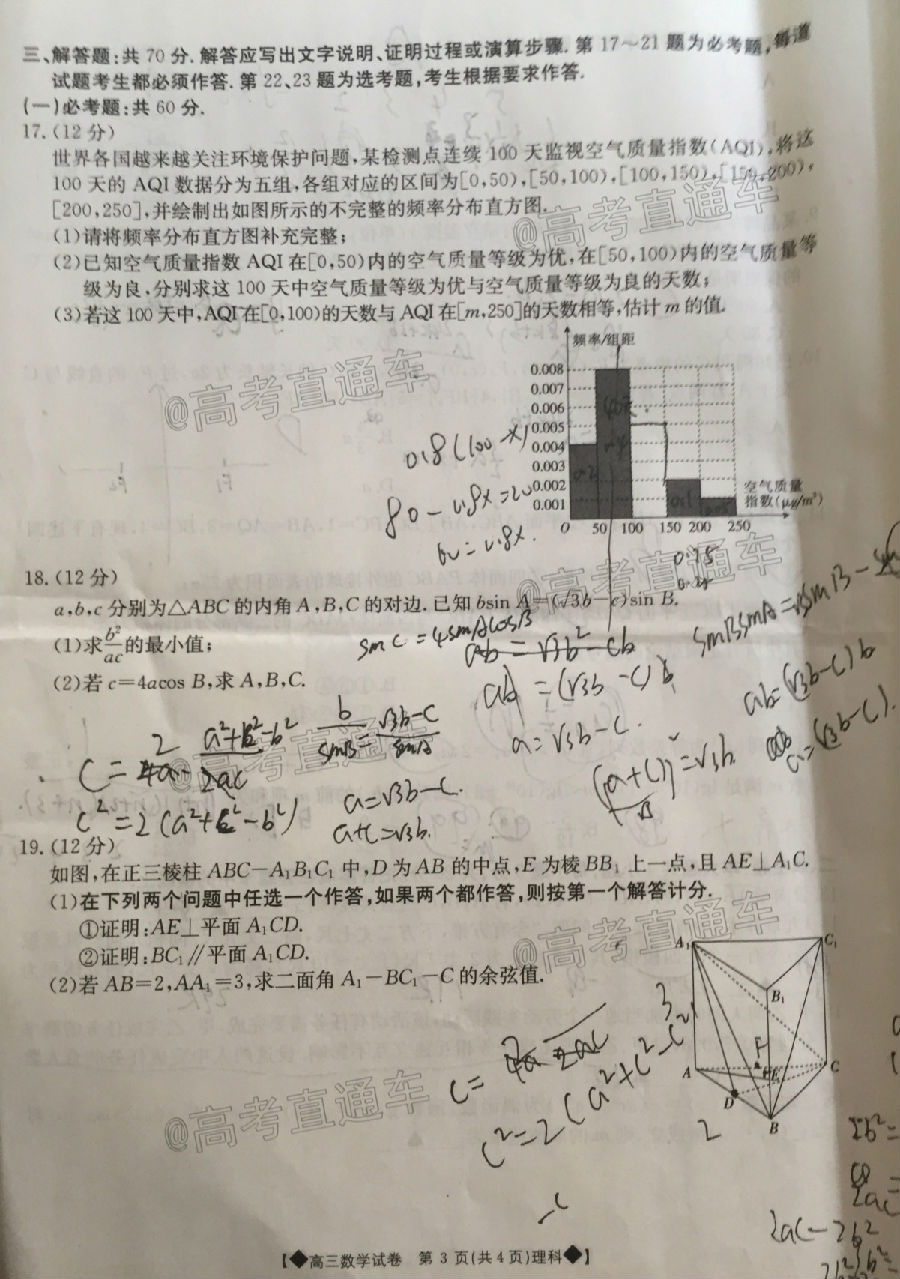 三、解答题:共 70 分. 解答应写出文字说明、证明过程或演算步骤. 第 17～21 题为必考题,每道
试题考生都必须作答. 第 22、23 题为选考题,考生根据要求作答.
(一)必考题:共 60 分.
17.(12 分)
世界各国越来越关注环境保护问题,某检测点连续 100 天监视空气质量指数(AQI),将这
100 天的 AQI 数据分为五组,各组对应的区间为[0,50),[50,100),[100,150),[150,200),
[200,250],并绘制出如图所示的不完整的频率分布直方图.
@高考直通车
(1)请将频率分布直方图补充完整;
(2)已知空气质量指数 AQI 在[0,50)内的空气质量等级为优,在[50,100)内的空气质量等
级为良,分别求这 100 天中空气质量等级为优与空气质量等级为良的天数;
(3)若这 100 天中,AQI 在[0,100)的天数与 AQI 在[m,250]的天数相等,估计 m 的值.
频率/组距
0.008
0.007
0.006
0.005
0.004
0.003
0.002
0.001
0 50 100 150 200 250
空气质量
指数(μg/m³)
@高考直通车
0.8(100-x)
80-0.8x=20
18.(12 分)
@高考直通车
a,b,c 分别为△ABC 的内角 A,B,C 的对边. 已知 bsin A=(√3b-c)sin B.
(1)求b²/ac的最小值;
sinC=4sinAcosB
ab=√3b²-cb
(2)若 c=4acos B,求 A,B,C.
ab=(√3b-c)b
ab=(√3b-c)b
a=√3b-c.
b/sinB=√3b-c/sinA
a=√3b-c.
a+c=√3b.
@高考直通车
19.(12 分)
如图,在正三棱柱 ABC-A₁B₁C₁ 中,D 为 AB 的中点,E 为棱 BB₁ 上一点,且 AE⊥A₁C.
(1)在下列两个问题中任选一个作答,如果两个都作答,则按第一个解答计分.
①证明:AE⊥平面 A₁CD.
②证明:BC₁∥平面 A₁CD.
(2)若 AB=2,AA₁=3,求二面角 A₁-BC₁-C 的余弦值.
@高考直通车
A₁
C₁
B₁
A
C
E
D
B
3
2
@高考直通车
2ac-2b²
【◆高三数学试卷 第 3 页(共 4 页)理科◆】